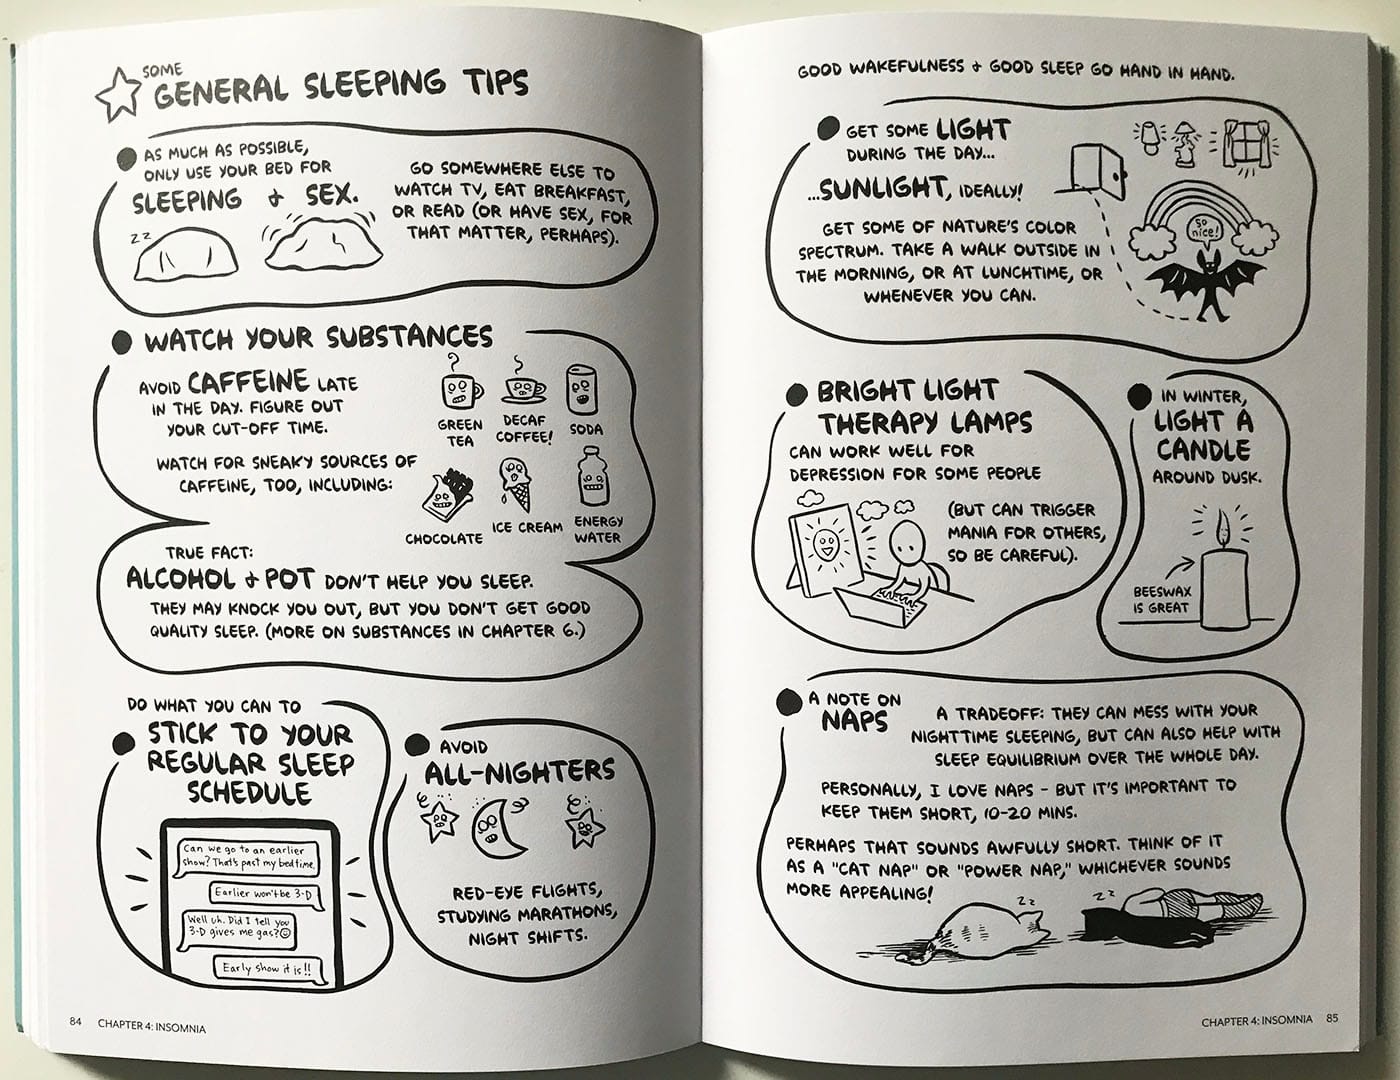 SOME
GENERAL SLEEPING TIPS
AS MUCH AS POSSIBLE,
ONLY USE YOUR BED FOR
SLEEPING & SEX.
GO SOMEWHERE ELSE TO
WATCH TV, EAT BREAKFAST,
OR READ (OR HAVE SEX, FOR
THAT MATTER, PERHAPS).
ZZ
WATCH YOUR SUBSTANCES
AVOID CAFFEINE LATE
IN THE DAY. FIGURE OUT
YOUR CUT-OFF TIME.
WATCH FOR SNEAKY SOURCES OF
CAFFEINE, TOO, INCLUDING:
GREEN
TEA
DECAF
COFFEE!
SODA
CHOCOLATE
ICE CREAM
ENERGY
WATER
TRUE FACT:
ALCOHOL & POT DON'T HELP YOU SLEEP.
THEY MAY KNOCK YOU OUT, BUT YOU DON'T GET GOOD
QUALITY SLEEP. (MORE ON SUBSTANCES IN CHAPTER 6.)
DO WHAT YOU CAN TO
STICK TO YOUR
REGULAR SLEEP
SCHEDULE
Can we go to an earlier
show? That's past my bedtime.
Earlier won't be 3-D
Well uh. Did I tell you
3-D gives me gas?☺
Early show it is!!
AVOID
ALL-NIGHTERS
RED-EYE FLIGHTS,
STUDYING MARATHONS,
NIGHT SHIFTS.
84 CHAPTER 4: INSOMNIA
GOOD WAKEFULNESS & GOOD SLEEP GO HAND IN HAND.
GET SOME LIGHT
DURING THE DAY...
...SUNLIGHT, IDEALLY!
GET SOME OF NATURE'S COLOR
SPECTRUM. TAKE A WALK OUTSIDE IN
THE MORNING, OR AT LUNCHTIME, OR
WHENEVER YOU CAN.
So
nice!
BRIGHT LIGHT
THERAPY LAMPS
CAN WORK WELL FOR
DEPRESSION FOR SOME PEOPLE
(BUT CAN TRIGGER
MANIA FOR OTHERS,
SO BE CAREFUL).
IN WINTER,
LIGHT A
CANDLE
AROUND DUSK.
BEESWAX
IS GREAT
A NOTE ON
NAPS
A TRADEOFF: THEY CAN MESS WITH YOUR
NIGHTTIME SLEEPING, BUT CAN ALSO HELP WITH
SLEEP EQUILIBRIUM OVER THE WHOLE DAY.
PERSONALLY, I LOVE NAPS - BUT IT'S IMPORTANT TO
KEEP THEM SHORT, 10-20 MINS.
PERHAPS THAT SOUNDS AWFULLY SHORT. THINK OF IT
AS A "CAT NAP" OR "POWER NAP," WHICHEVER SOUNDS
MORE APPEALING!
ZZ
ZZ
CHAPTER 4: INSOMNIA 85